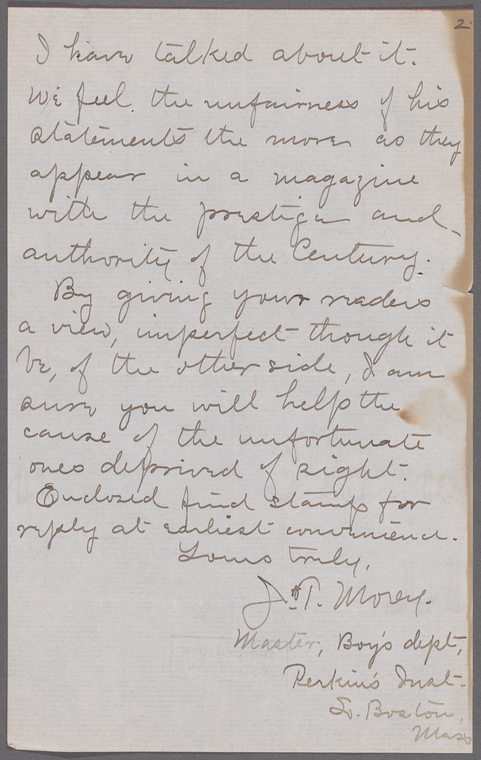 2
I have talked about it.
We feel the unfairness of his
statements the more as they
appear in a magazine
with the prestige and
authority of the Century.
By giving your readers
a view, imperfect though it
be, of the other side, I am
sure you will help the
cause of the unfortunate
ones deprived of sight.
Enclosed find stamp for
reply at earliest convenience.
Yours truly,
J. T. Morey.
Master, Boy's dept,
Perkin's Inst.
So. Boston,
Mass